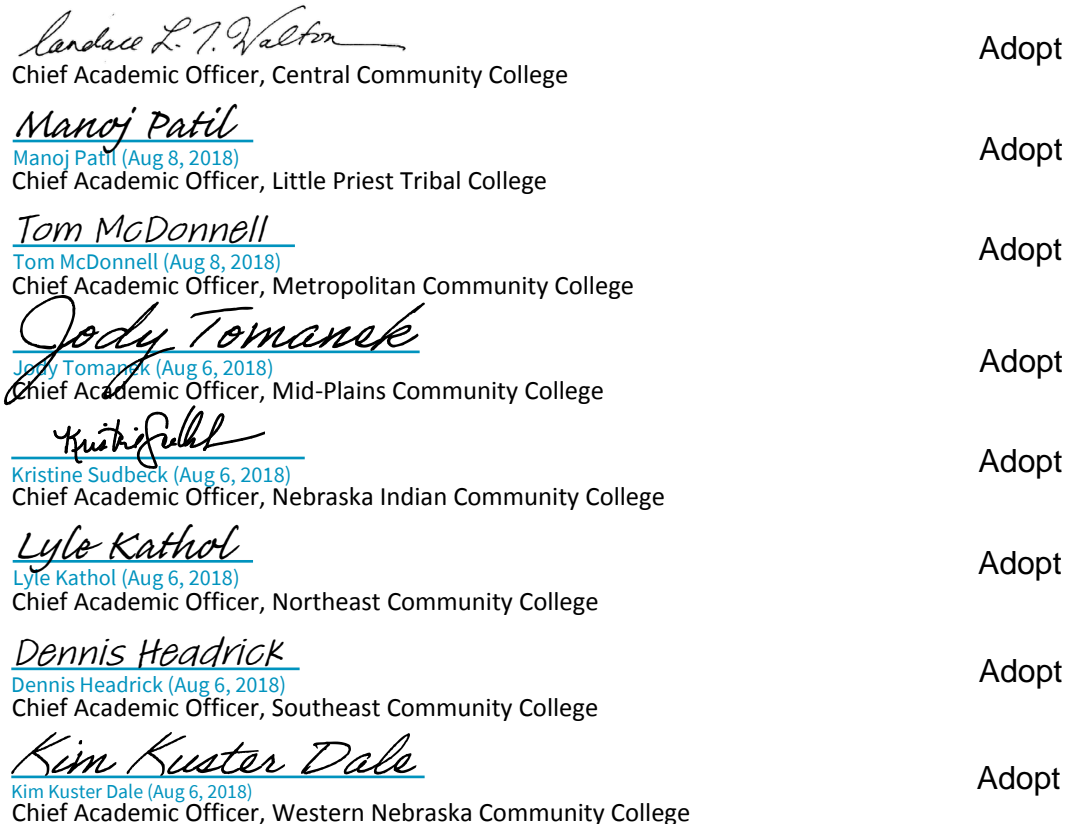 Candace L. T. Walton Adopt
Chief Academic Officer, Central Community College
Manoj Patil Adopt
Manoj Patil (Aug 8, 2018)
Chief Academic Officer, Little Priest Tribal College
Tom McDonnell Adopt
Tom McDonnell (Aug 8, 2018)
Chief Academic Officer, Metropolitan Community College
Jody Tomanek Adopt
Jody Tomanek (Aug 6, 2018)
Chief Academic Officer, Mid-Plains Community College
Kristine Sudbeck Adopt
Kristine Sudbeck (Aug 6, 2018)
Chief Academic Officer, Nebraska Indian Community College
Lyle Kathol Adopt
Lyle Kathol (Aug 6, 2018)
Chief Academic Officer, Northeast Community College
Dennis Headrick Adopt
Dennis Headrick (Aug 6, 2018)
Chief Academic Officer, Southeast Community College
Kim Kuster Dale Adopt
Kim Kuster Dale (Aug 6, 2018)
Chief Academic Officer, Western Nebraska Community College